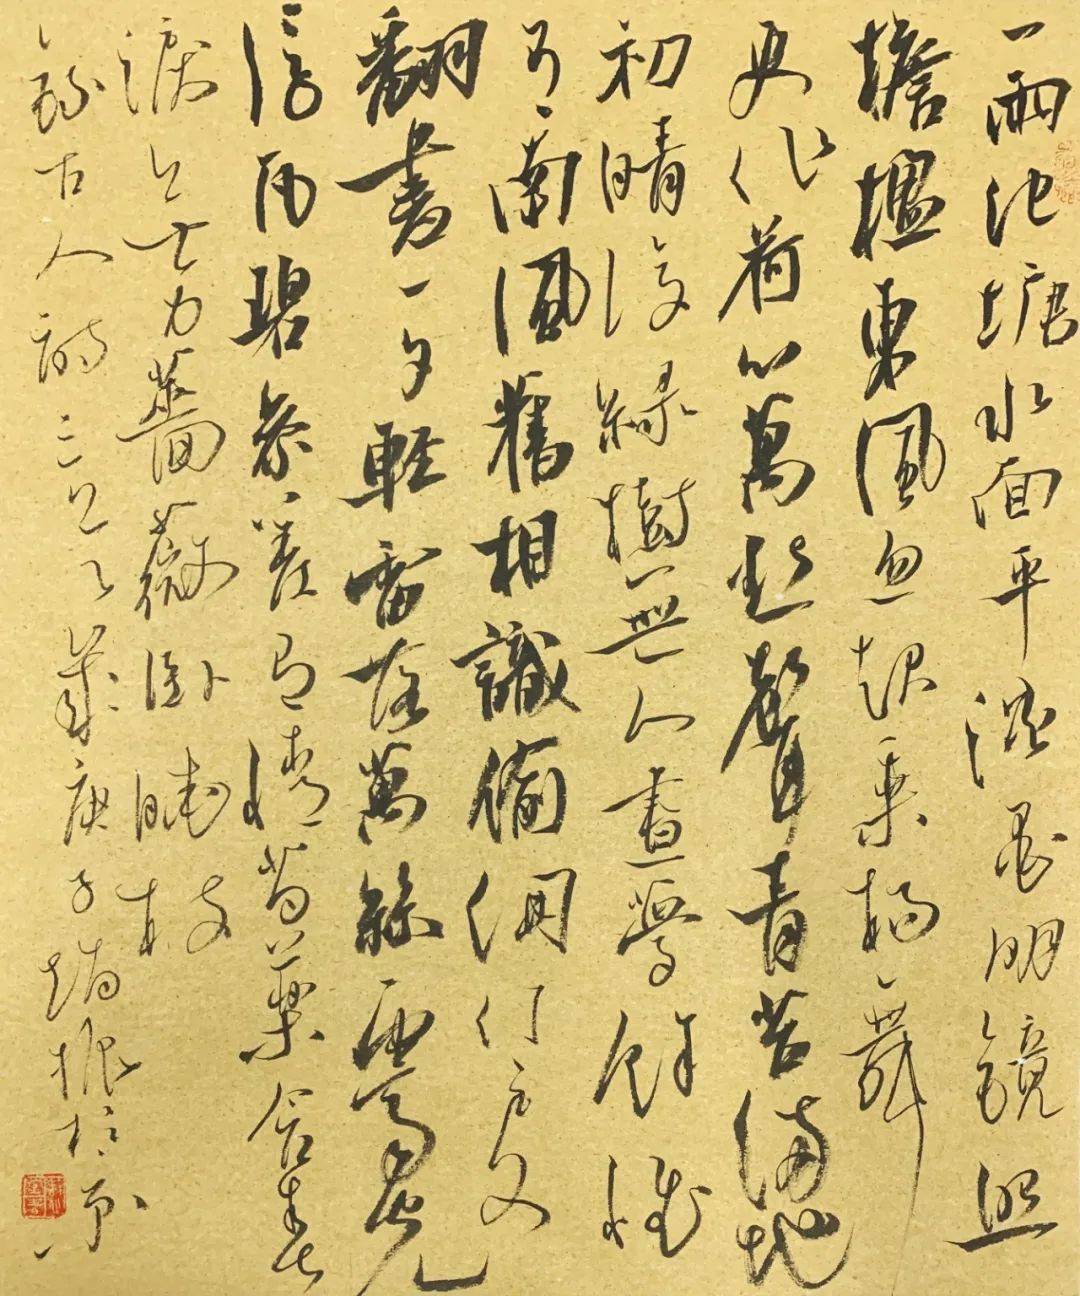 一雨池塘水面平淡磨明鏡照
檐楹東風忽起垂楊舞
更作荷心萬點聲青苔滿地
初晴後綠樹無人晝夢餘惟
有南風舊相識偷開門戶又
翻書一夕輕雷落萬絲霽光
浮瓦碧參差有情芍藥含春
淚無力薔薇臥曉枝
錄古人詩三首歲庚子於京